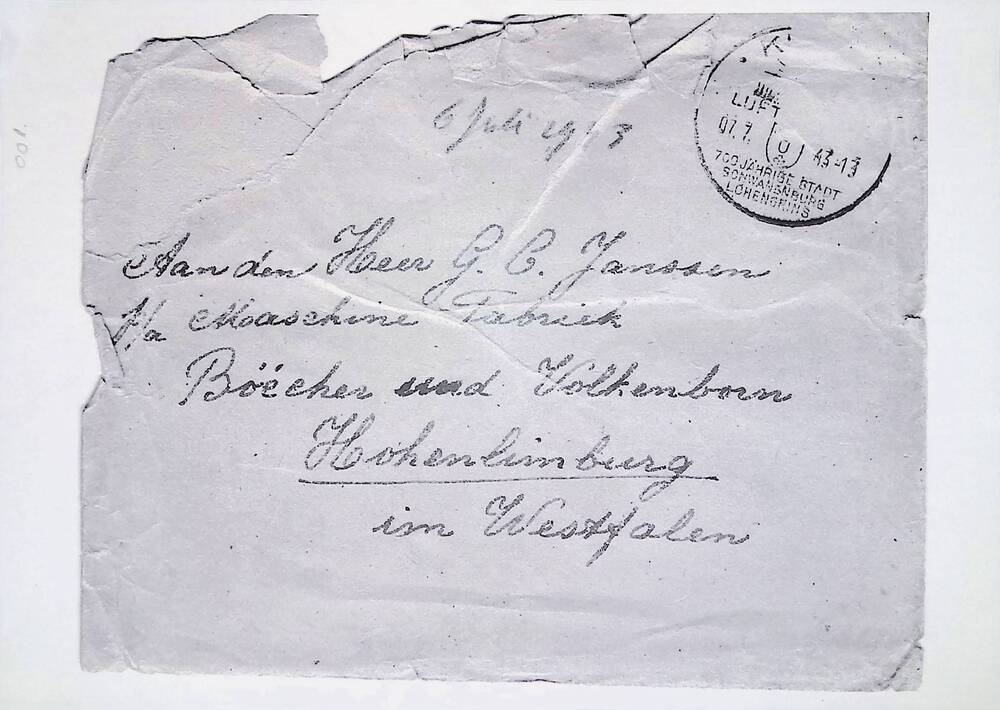 001.
K
LUFT
07.7 43-13
U
700 JÄHRIGE STADT
SCHWANENBURG
LOHENGRINS
6 Juli 1943
Aan den Heer G. C. Janssen
p/a Maaschine Fabriek
Böëcher und Völkenborn
Hohenlimburg
im Westfalen